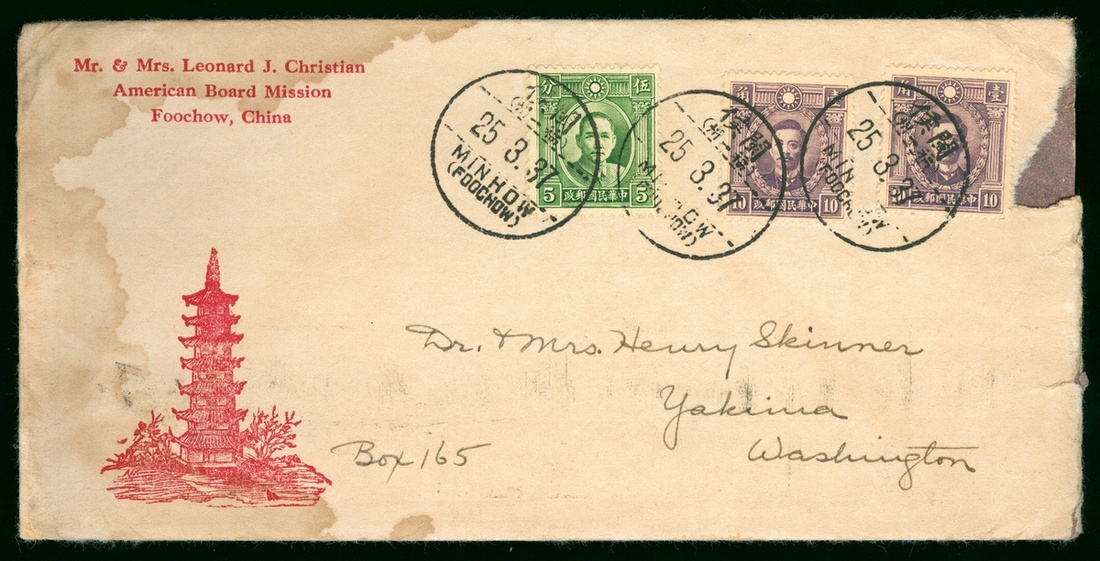 Mr. & Mrs. Leonard J. Christian
American Board Mission
Foochow, China
分 伍
5 5
政郵國民華中
25.3.37
閩侯
MINHOW
(FOOCHOW)
25.3.37
閩侯
角 壹
10 10
政郵國民華中
25.3.37
閩侯
MIN
(FOOCHOW)
角 壹
10
政郵國民華中
Dr. & Mrs. Henry Skinner
Yakima
Box 165
Washington